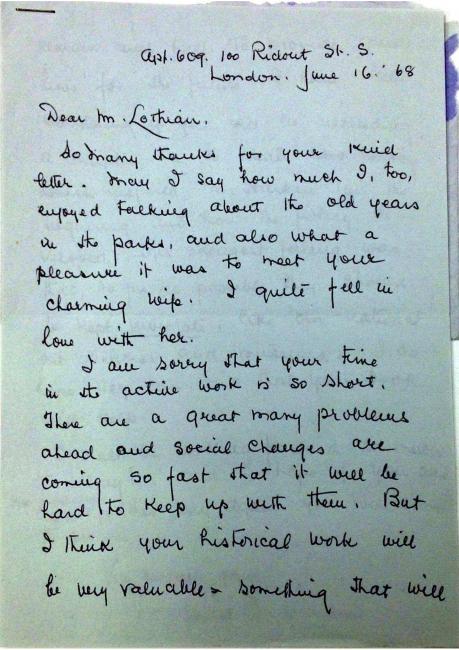 Apt. 609. 100 Ridout St. S.
London. June 16. '68
Dear Mr. Lothian,
So many thanks for your kind
letter. May I say how much I, too,
enjoyed talking about the old years
in the parks, and also what a
pleasure it was to meet your
charming wife. I quite fell in
love with her.
I am sorry that your time
in its active work is so short.
There are a great many problems
ahead and social changes are
coming so fast that it will be
hard to keep up with them. But
I think your historical work will
be very valuable - something that will